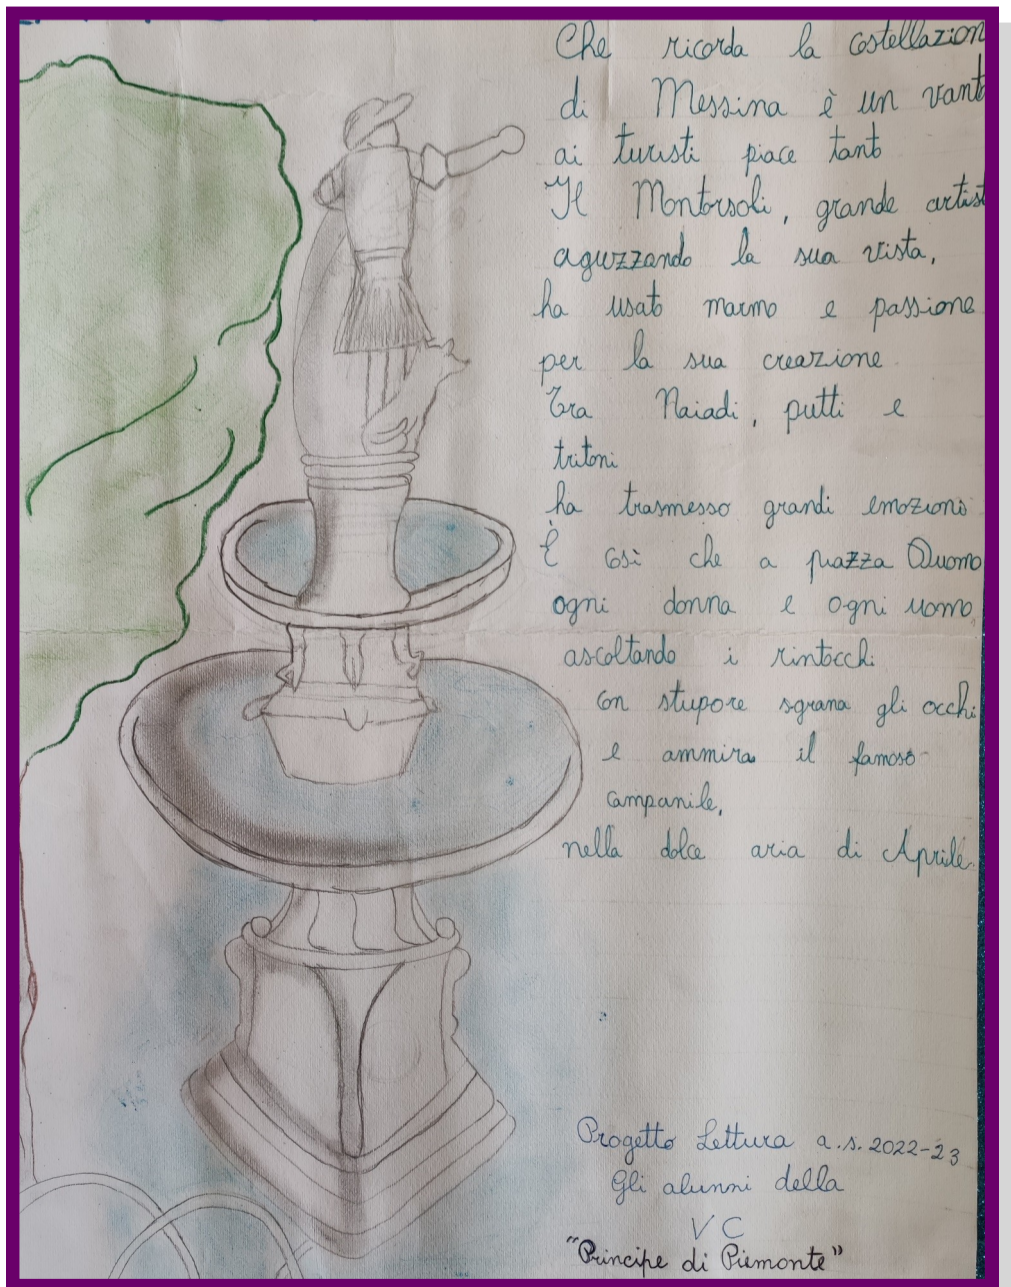 Che ricorda la costellazion
di Messina è un vant
ai turisti piace tanto
Il Montorsoli, grande artist
aguzzando la sua vista,
ha usato marmo e passione
per la sua creazione.
Tra Naiadi, putti e
tritoni
ha trasmesso grandi emozioni
È così che a piazza Duomo
ogni donna e ogni uomo,
ascoltando i rintocchi
con stupore sgrana gli occhi
e ammira il famoso
campanile,
nella dolce aria di Aprile.
Progetto Lettura a.s. 2022-23
Gli alunni della
V C
"Principe di Piemonte"